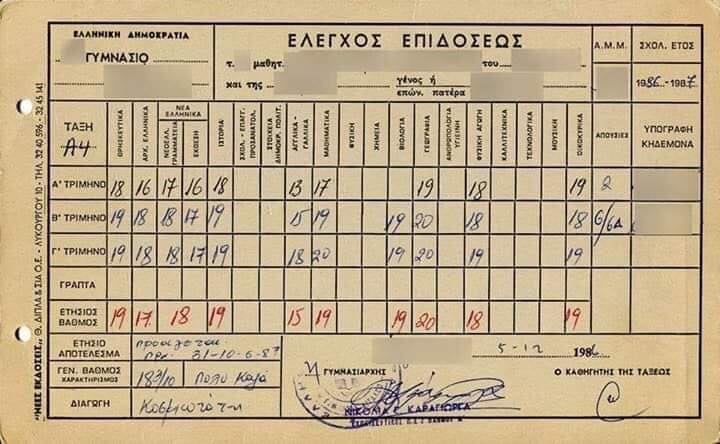 ΕΛΛΗΝΙΚΗ ΔΗΜΟΚΡΑΤΙΑ
ΓΥΜΝΑΣΙΟ
ΕΛΕΓΧΟΣ ΕΠΙΔΟΣΕΩΣ
τ. μαθητ. του
και της γένος ή επών. πατέρα
Α.Μ.Μ.
ΣΧΟΛ. ΕΤΟΣ
1986-1987
ΤΑΞΗ
Α4
ΘΡΗΣΚΕΥΤΙΚΑ
ΑΡΧ. ΕΛΛΗΝΙΚΑ
ΝΕΑ ΕΛΛΗΝΙΚΑ
ΝΕΟΕΛΛ. ΓΡΑΜΜΑΤΕΙΑ
ΕΚΘΕΣΗ
ΙΣΤΟΡΙΑ
ΣΧΟΛ. - ΕΠΑΓΓ. ΠΡΟΣΑΝΑΤΟΛ.
ΣΤΟΙΧΕΙΑ ΔΗΜΟΚΡ. ΠΟΛΙΤ.
ΑΓΓΛΙΚΑ - ΓΑΛΛΙΚΑ
ΜΑΘΗΜΑΤΙΚΑ
ΦΥΣΙΚΗ
ΧΗΜΕΙΑ
ΒΙΟΛΟΓΙΑ
ΓΕΩΓΡΑΦΙΑ
ΑΝΘΡΩΠΟΛΟΓΙΑ ΥΓΙΕΙΝΗ
ΦΥΣΙΚΗ ΑΓΩΓΗ
ΚΑΛΛΙΤΕΧΝΙΚΑ
ΤΕΧΝΟΛΟΓΙΚΑ
ΜΟΥΣΙΚΗ
ΟΙΚΟΚΥΡΙΚΑ
ΑΠΟΥΣΙΕΣ
ΥΠΟΓΡΑΦΗ ΚΗΔΕΜΟΝΑ
Α' ΤΡΙΜΗΝΟ 18 16 17 16 18 13 17 19 18 19 2
Β' ΤΡΙΜΗΝΟ 19 18 18 17 19 15 19 19 20 18 18 6/6Δ
Γ' ΤΡΙΜΗΝΟ 19 18 18 17 19 18 20 19 20 19
ΓΡΑΠΤΑ
ΕΤΗΣΙΟΣ ΒΑΘΜΟΣ 19 17 18 19 15 19 19 20 18 19
ΕΤΗΣΙΟ ΑΠΟΤΕΛΕΣΜΑ
ΓΕΝ. ΒΑΘΜΟΣ ΧΑΡΑΚΤΗΡΙΣΜΟΣ 183/10 Πολύ Καλά
ΔΙΑΓΩΓΗ Κοσμιωτάτη
5-12 1986
Η ΓΥΜΝΑΣΙΑΡΧΗΣ
ΝΙΚΟΛΙΑ Γ. ΚΑΡΑΓΙΩΡΓΑ
Ο ΚΑΘΗΓΗΤΗΣ ΤΗΣ ΤΑΞΕΩΣ
"ΝΕΕΣ ΕΚΔΟΣΕΙΣ,, Θ. ΔΙΠΛΑ & ΣΙΑ Ο.Ε. - ΛΥΚΟΥΡΓΟΥ 10 - ΤΗΛ. 32 40 596 - 32 45 141